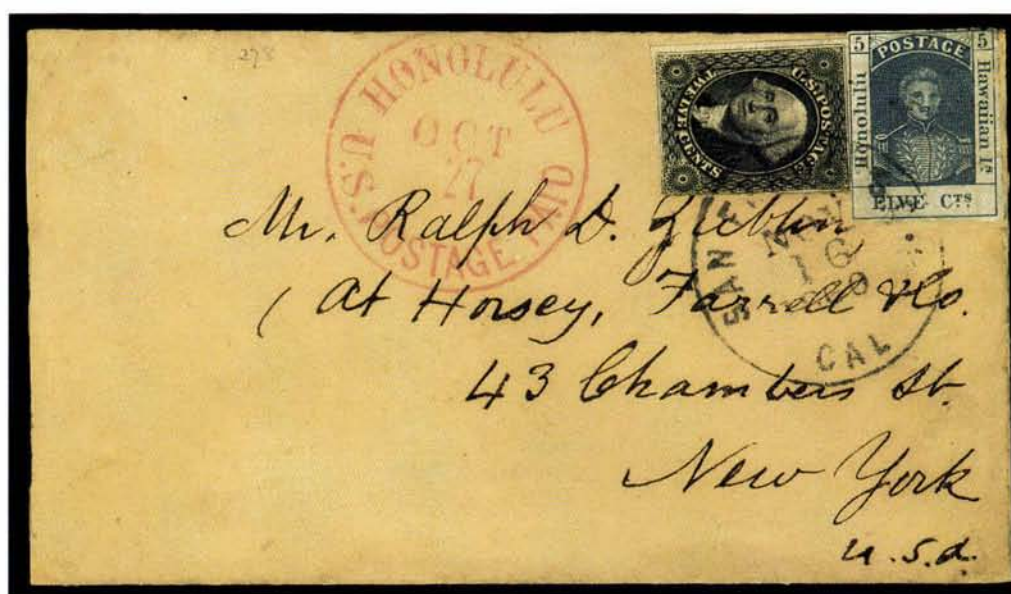 278
HONOLULU
U.S. POSTAGE PAID
OCT
27
U.S. POSTAGE
TWELVE CENTS
5 POSTAGE 5
Honolulu
Hawaiian Is
FIVE CTS
SAN
16
CAL
Mr. Ralph D.
(at Horsey, Farrell & Co.
43 Chambers St.
New York
U.S.A.